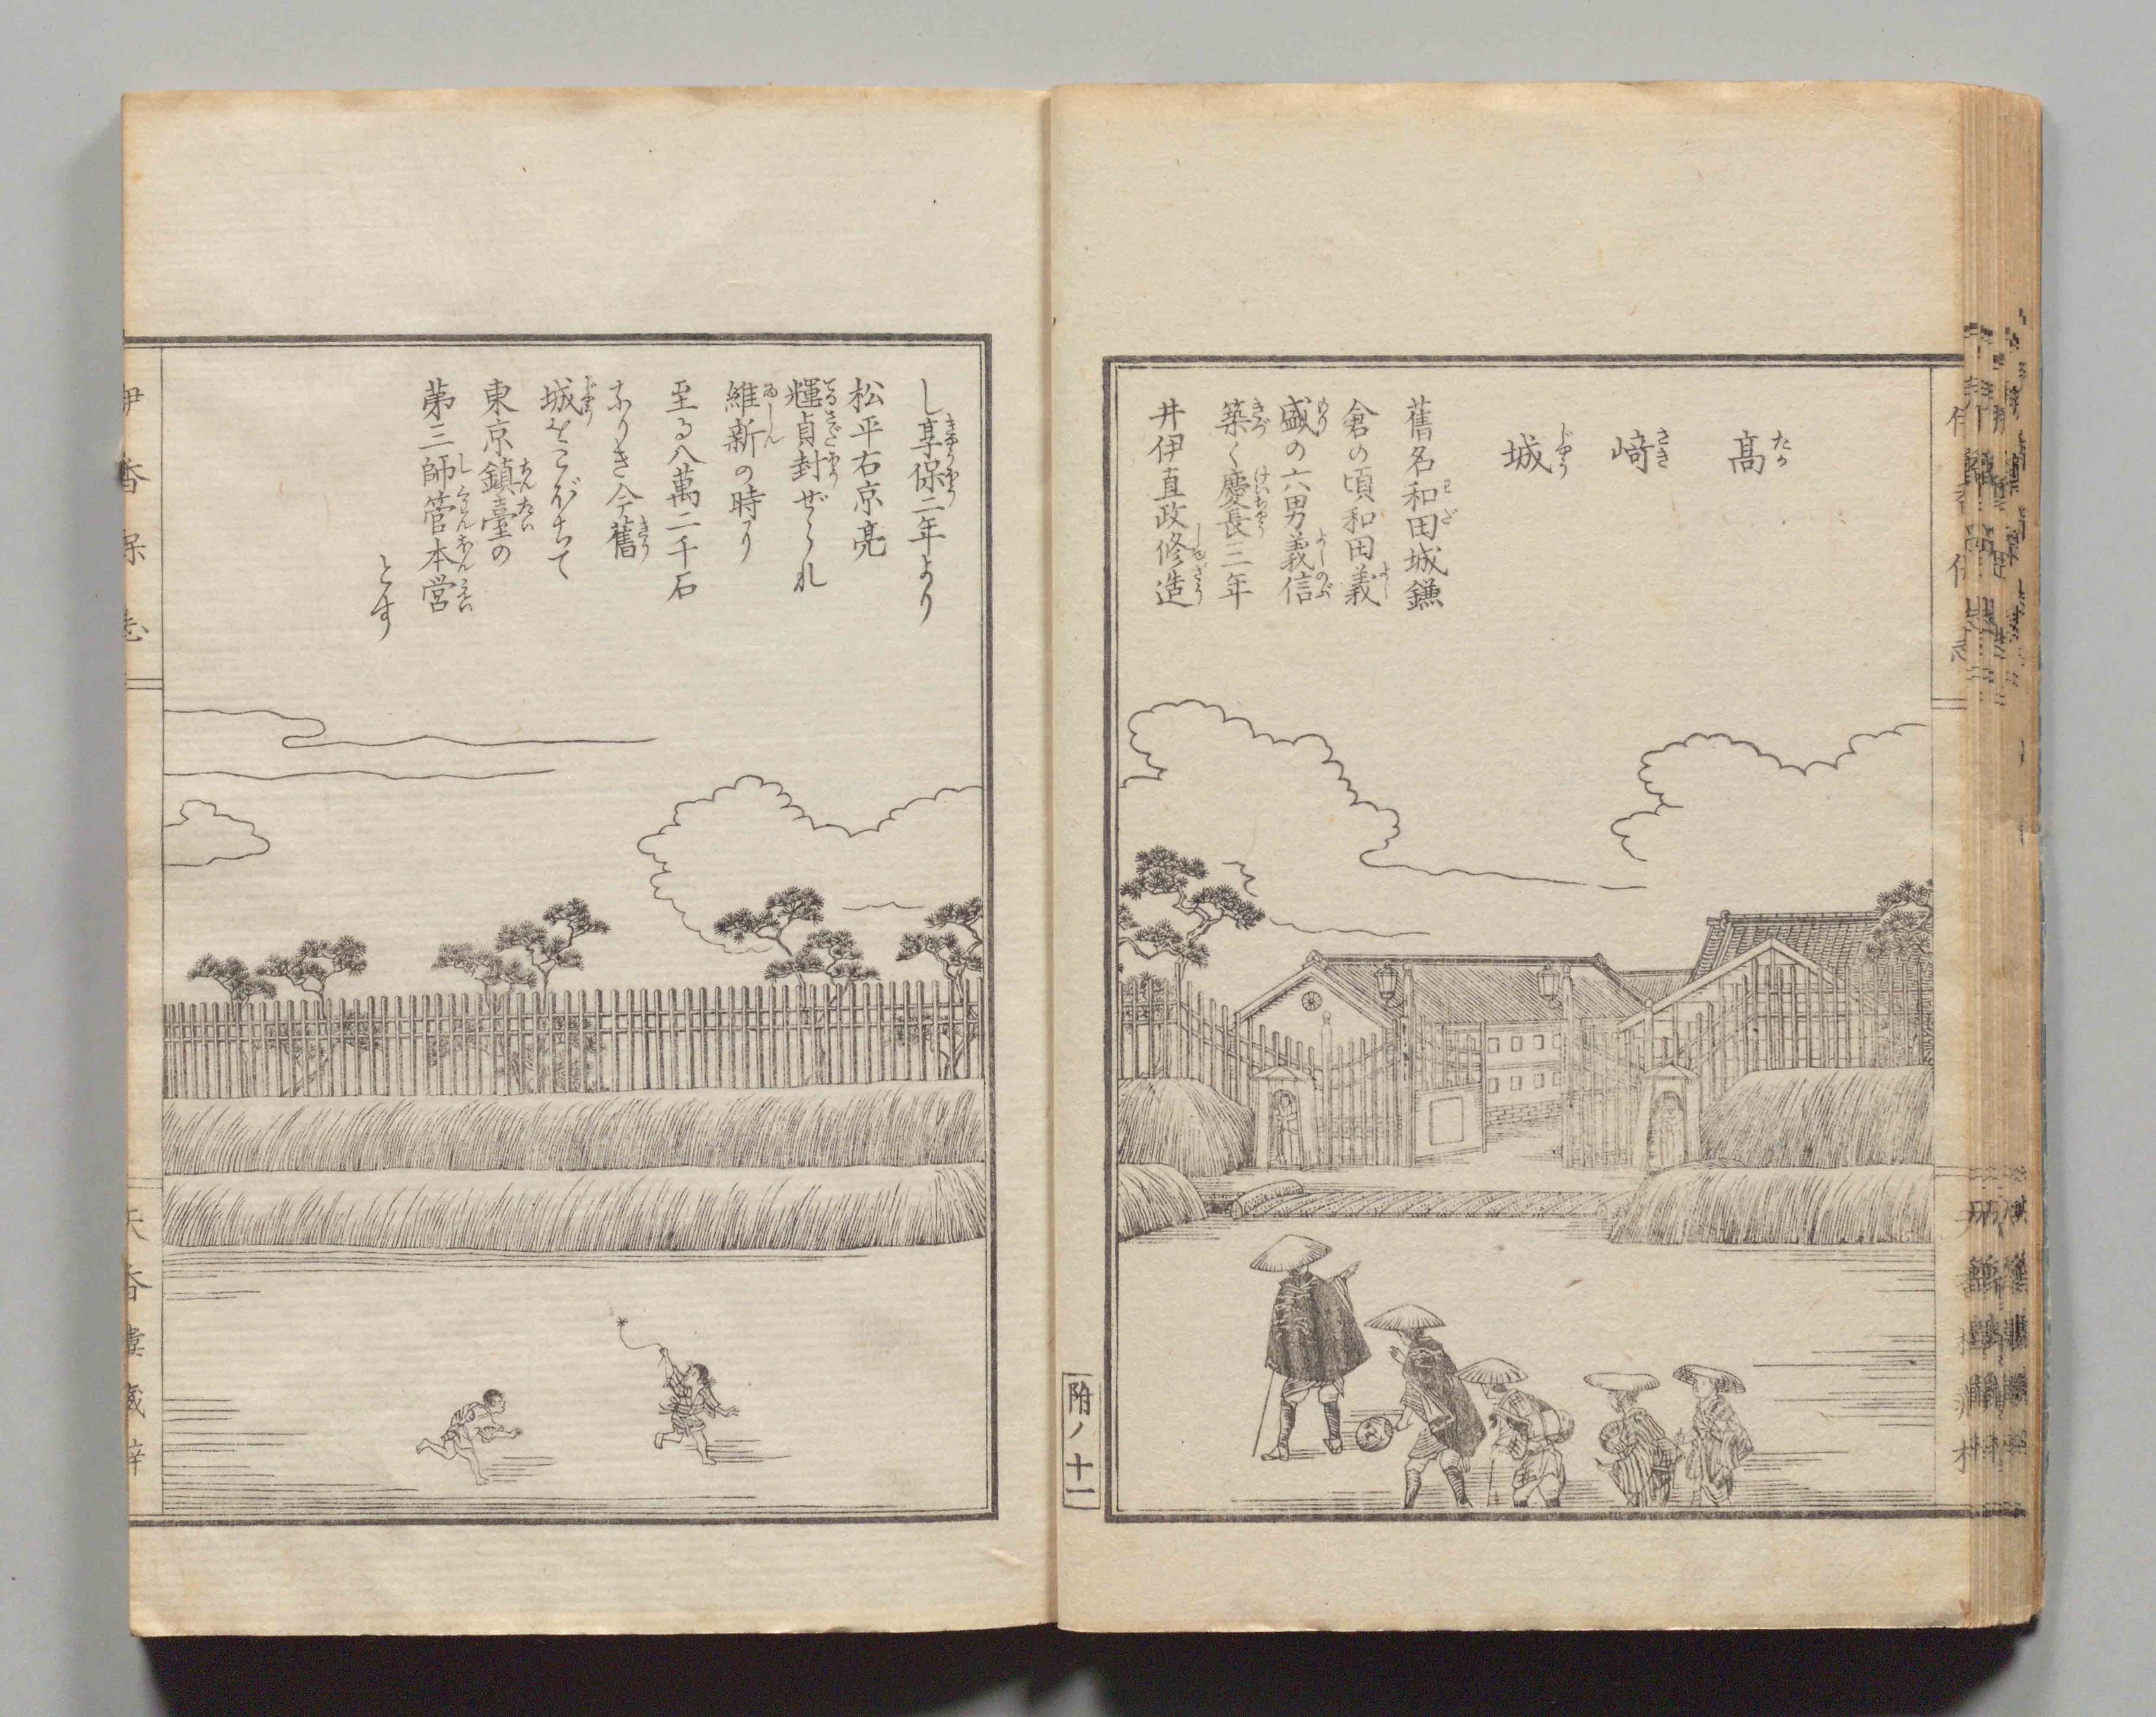 高﨑城
たか
さき
じやう
舊名和田城鎌
倉の頃和田義
盛の六男義信
築く慶長三年
井伊直政修造
し享保二年より
松平右京亮
輝貞封ぜられ
維新の時に
至る八萬二千石
なりき今舊
城をこぼちて
東京鎮臺の
苐三師管本営
とす
附ノ十一
伊香保志
天香樓蔵梓